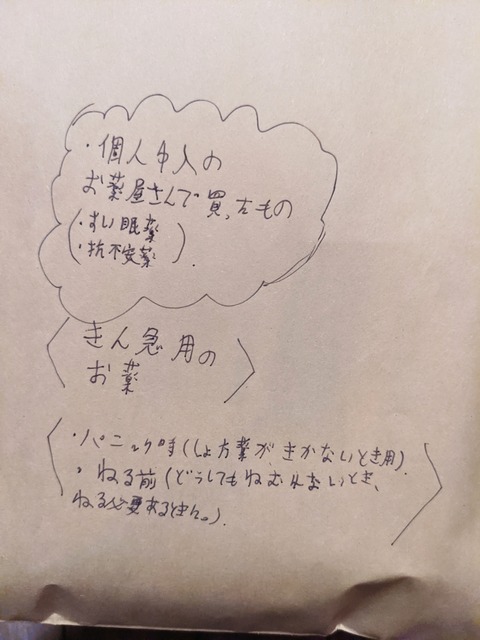 ・個人中人の
お薬屋さんで買ったもの
(・すい眠薬
・抗不安薬).
きん急用の
お薬
・パニック時(しょ方薬が、きかないとき用).
・ねる前(どうしてもねむれないとき、
ねる必要あるときに。).